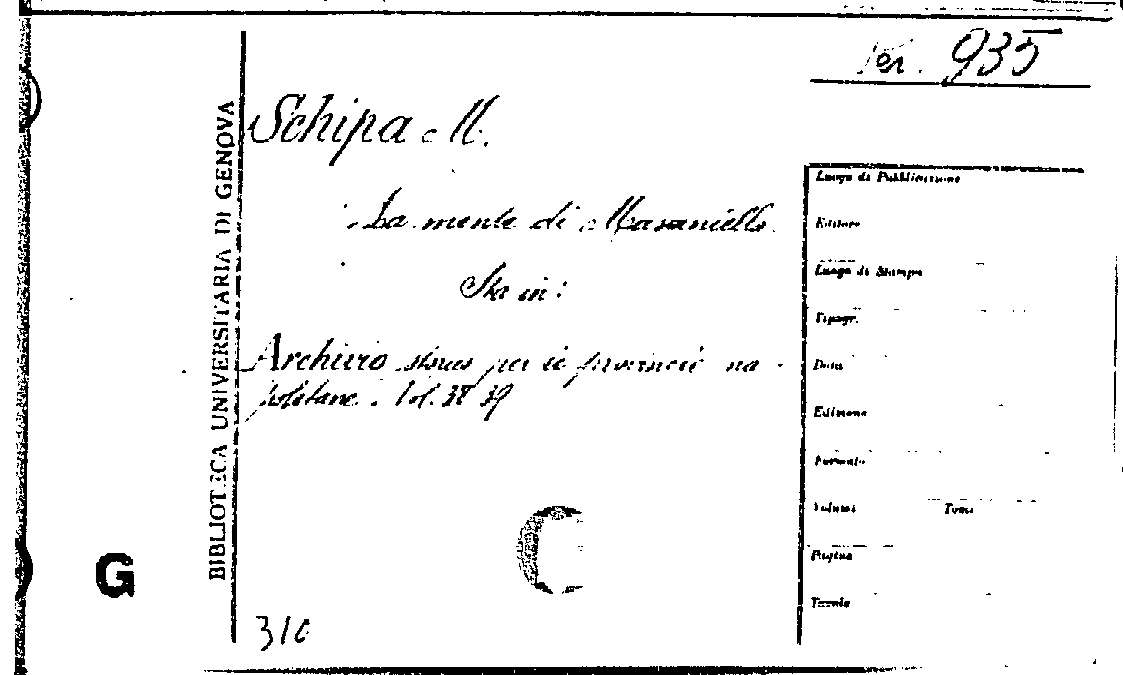 Per. 935
Schipa M.
La mente di Masaniello
Sta in:
Archivio storico per le provincie na-
poletane. Vol. 38 39
310
BIBLIOTECA UNIVERSITARIA DI GENOVA
G
Luogo di Pubblicazione
Editore
Luogo di Stampa
Tipogr.
Data
Edizione
Formato
Volumi Tomi
Pagine
Tavole